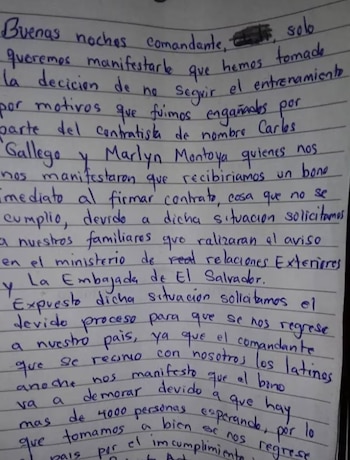 Buenas noches comandante, solo
queremos manifestarle que hemos tomado
la decicion de no seguir el entrenamiento
por motivos que fuimos engañados por
parte del contratista de nombre Carlos
Gallego y Marlyn Montoya quienes nos
nos manifestaron que recibiriamos un bono
imediato al firmar contrato, cosa que no se
cumplio, devido a dicha situacion solicitamos
a nuestros familiares que ralizaran el aviso
en el ministerio de relaciones Exteriores
y La Embajada de El Salvador.
Expuesto dicha situacion solicitamos el
devido proceso para que se nos regrese
a nuestro pais, ya que el comandante
que se reunio con nosotros los latinos
anoche nos manifesto que el bino
va a demorar devido a que hay
mas de 4000 personas esperando, por lo
que tomamos a bien se nos regrese
pais por el imcumplimiento